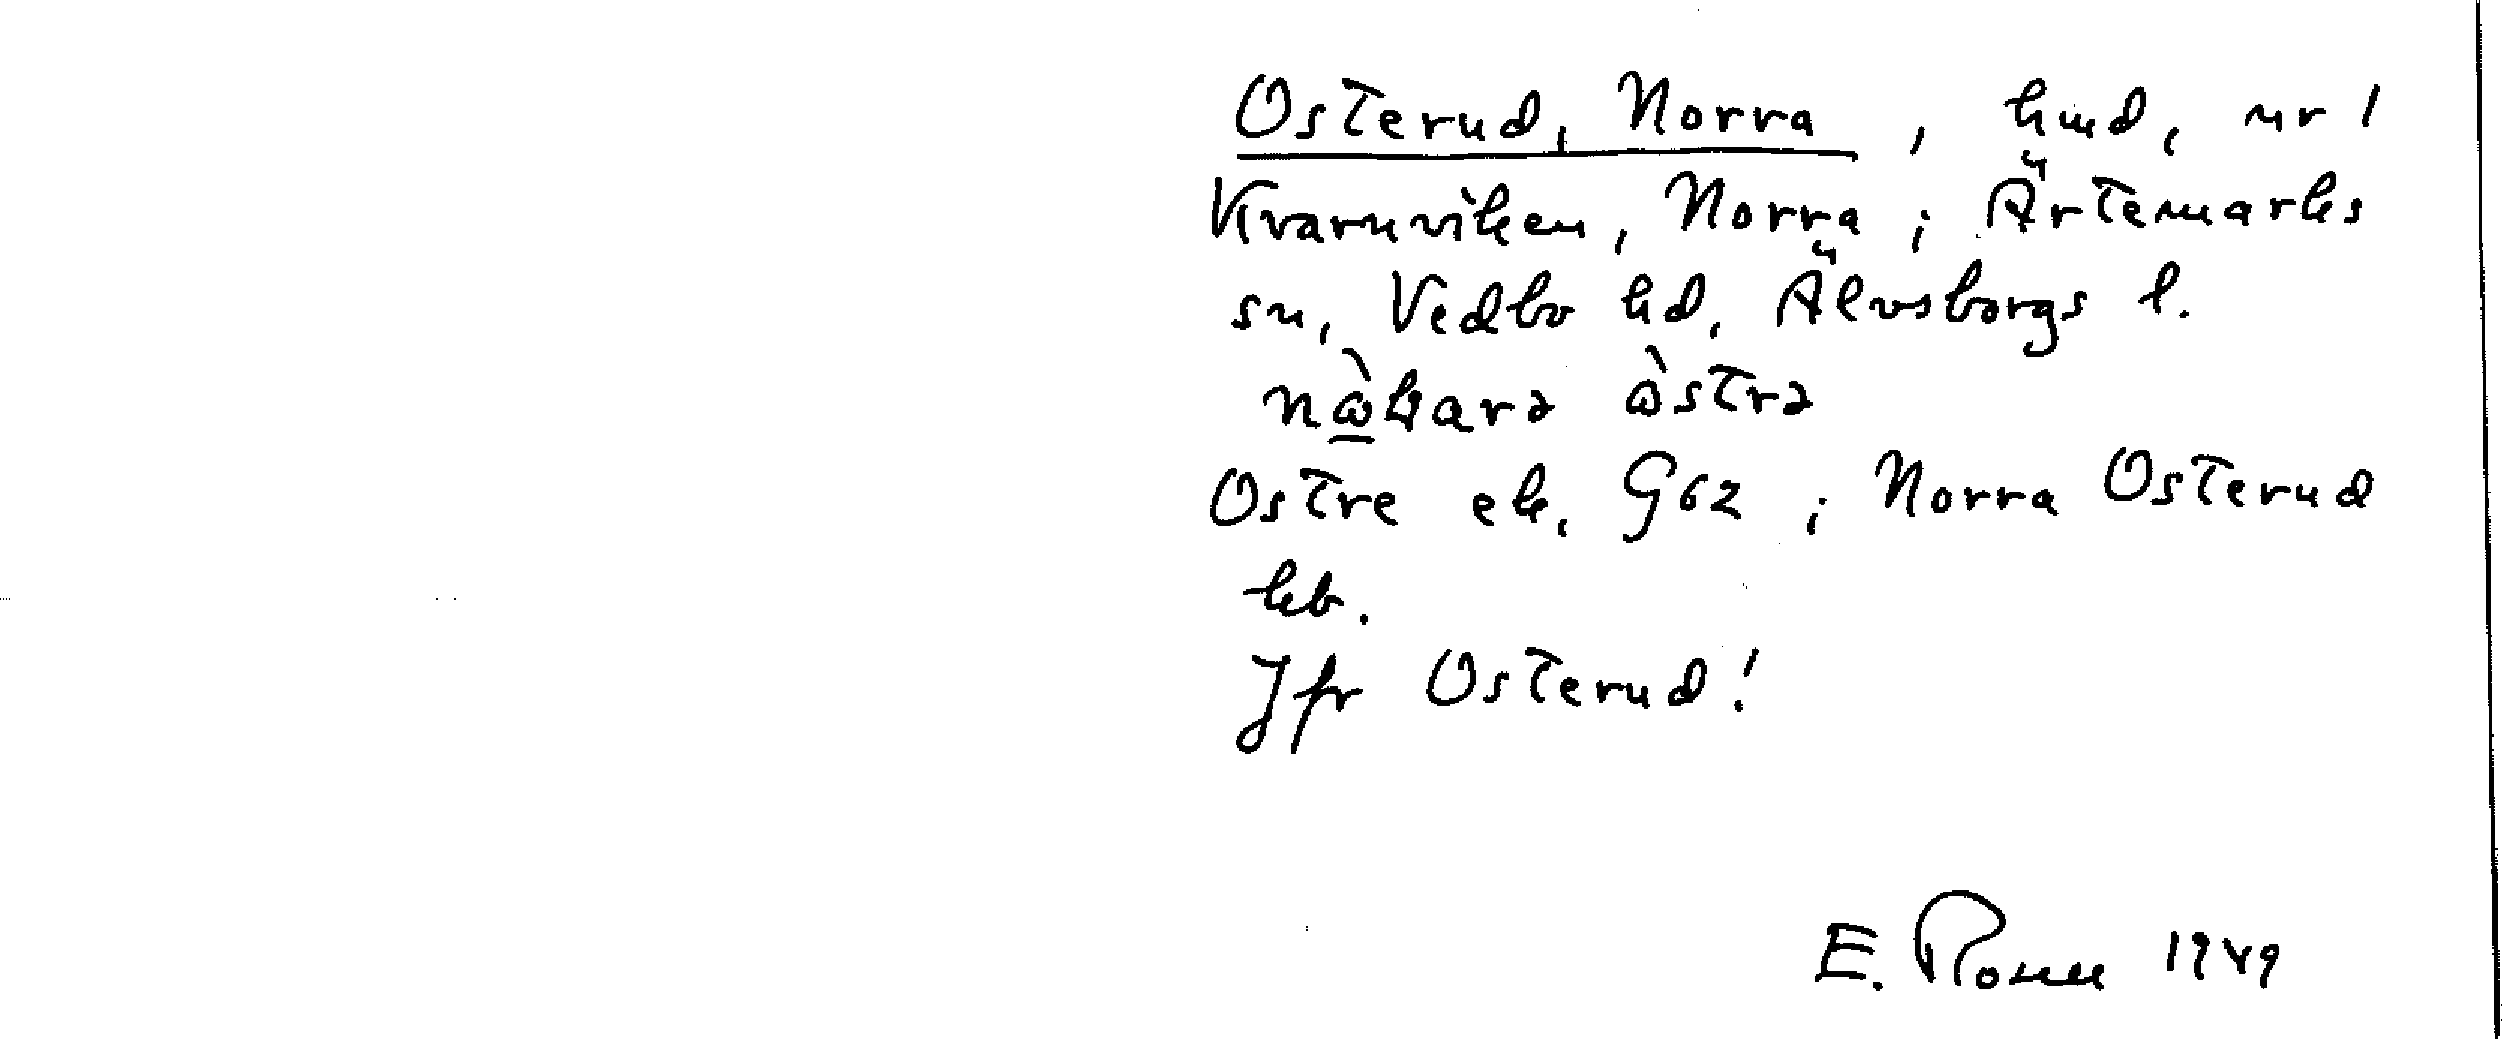 Osterud, Norra, hmd, nr 1
Kvarnviken, Norra; Ärtemarks
sn, Vedbo hd, Älvsborgs l.
Ostre ek. G62; Norra Osterud
kb.
Jfr Osterud!
E. Rosell 1949